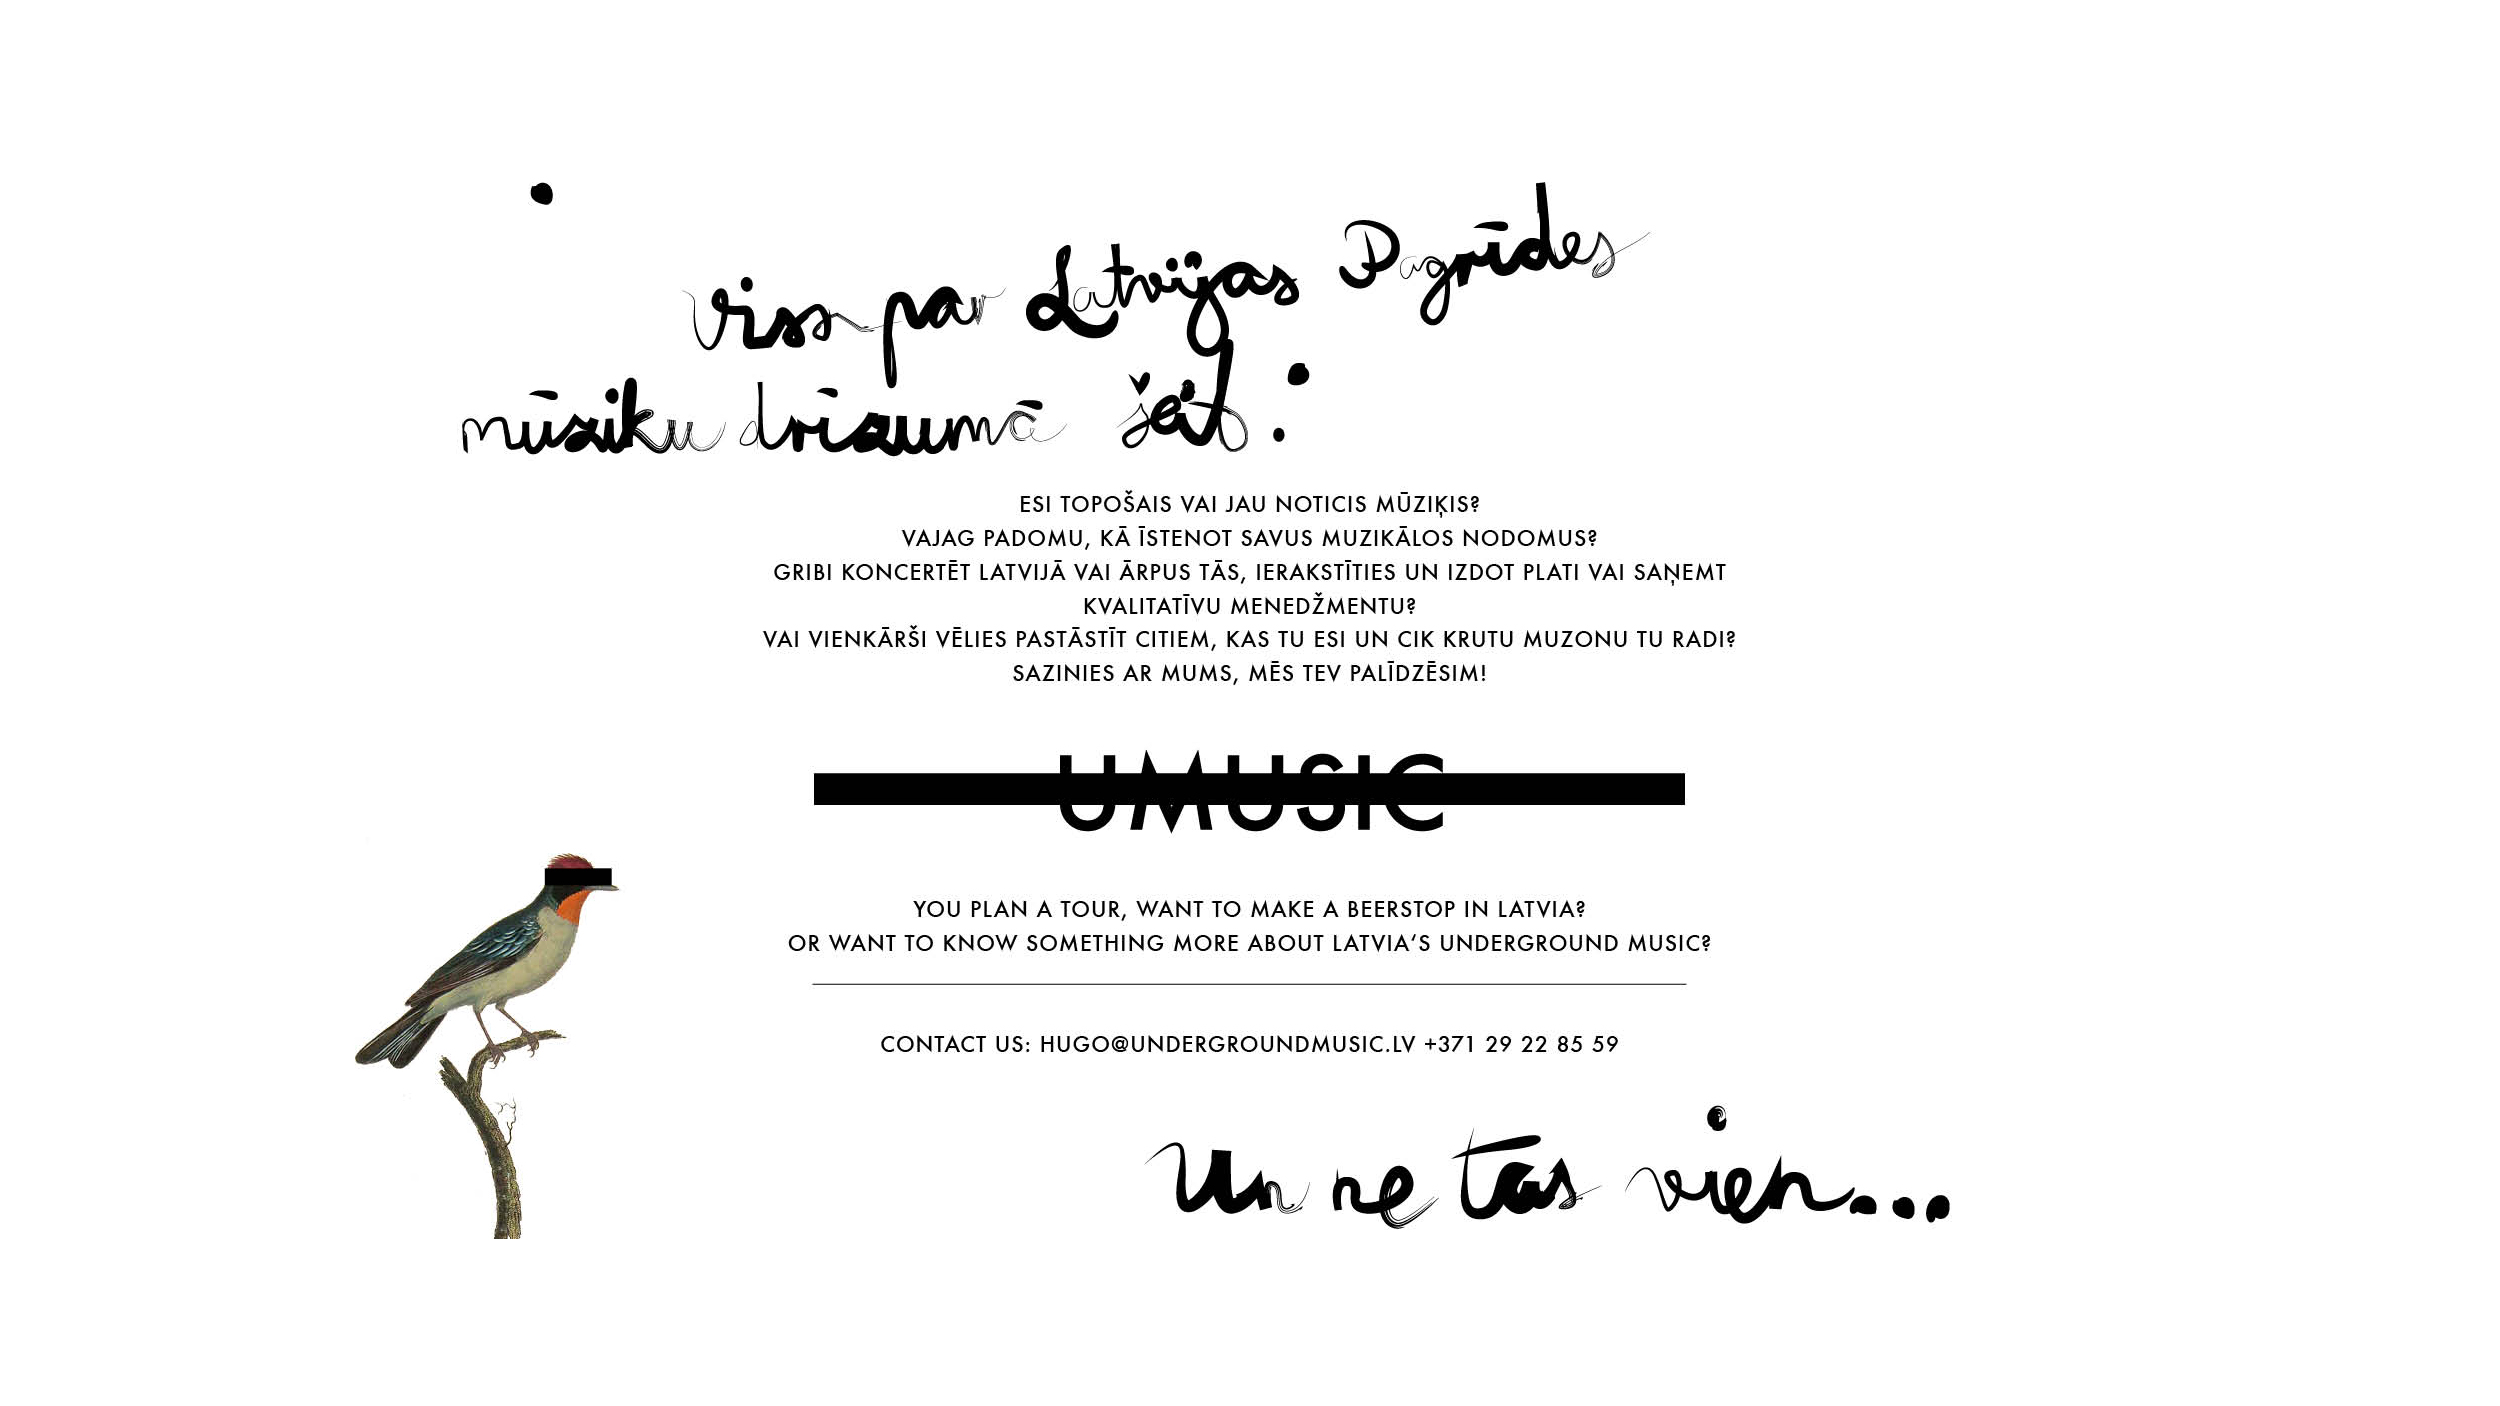 viss par Latvijas Pagrīdes
mūziku drīzumā šeit.
ESI TOPOŠAIS VAI JAU NOTICIS MŪZIĶIS?
VAJAG PADOMU, KĀ ĪSTENOT SAVUS MUZIKĀLOS NODOMUS?
GRIBI KONCERTĒT LATVIJĀ VAI ĀRPUS TĀS, IERAKSTĪTIES UN IZDOT PLATI VAI SAŅEMT
KVALITATĪVU MENEDŽMENTU?
VAI VIENKĀRŠI VĒLIES PASTĀSTĪT CITIEM, KAS TU ESI UN CIK KRUTU MUZONU TU RADI?
SAZINIES AR MUMS, MĒS TEV PALĪDZĒSIM!
UMUSIC
YOU PLAN A TOUR, WANT TO MAKE A BEERSTOP IN LATVIA?
OR WANT TO KNOW SOMETHING MORE ABOUT LATVIA‘S UNDERGROUND MUSIC?
CONTACT US: HUGO@UNDERGROUNDMUSIC.LV +371 29 22 85 59
Un ne tas vien...